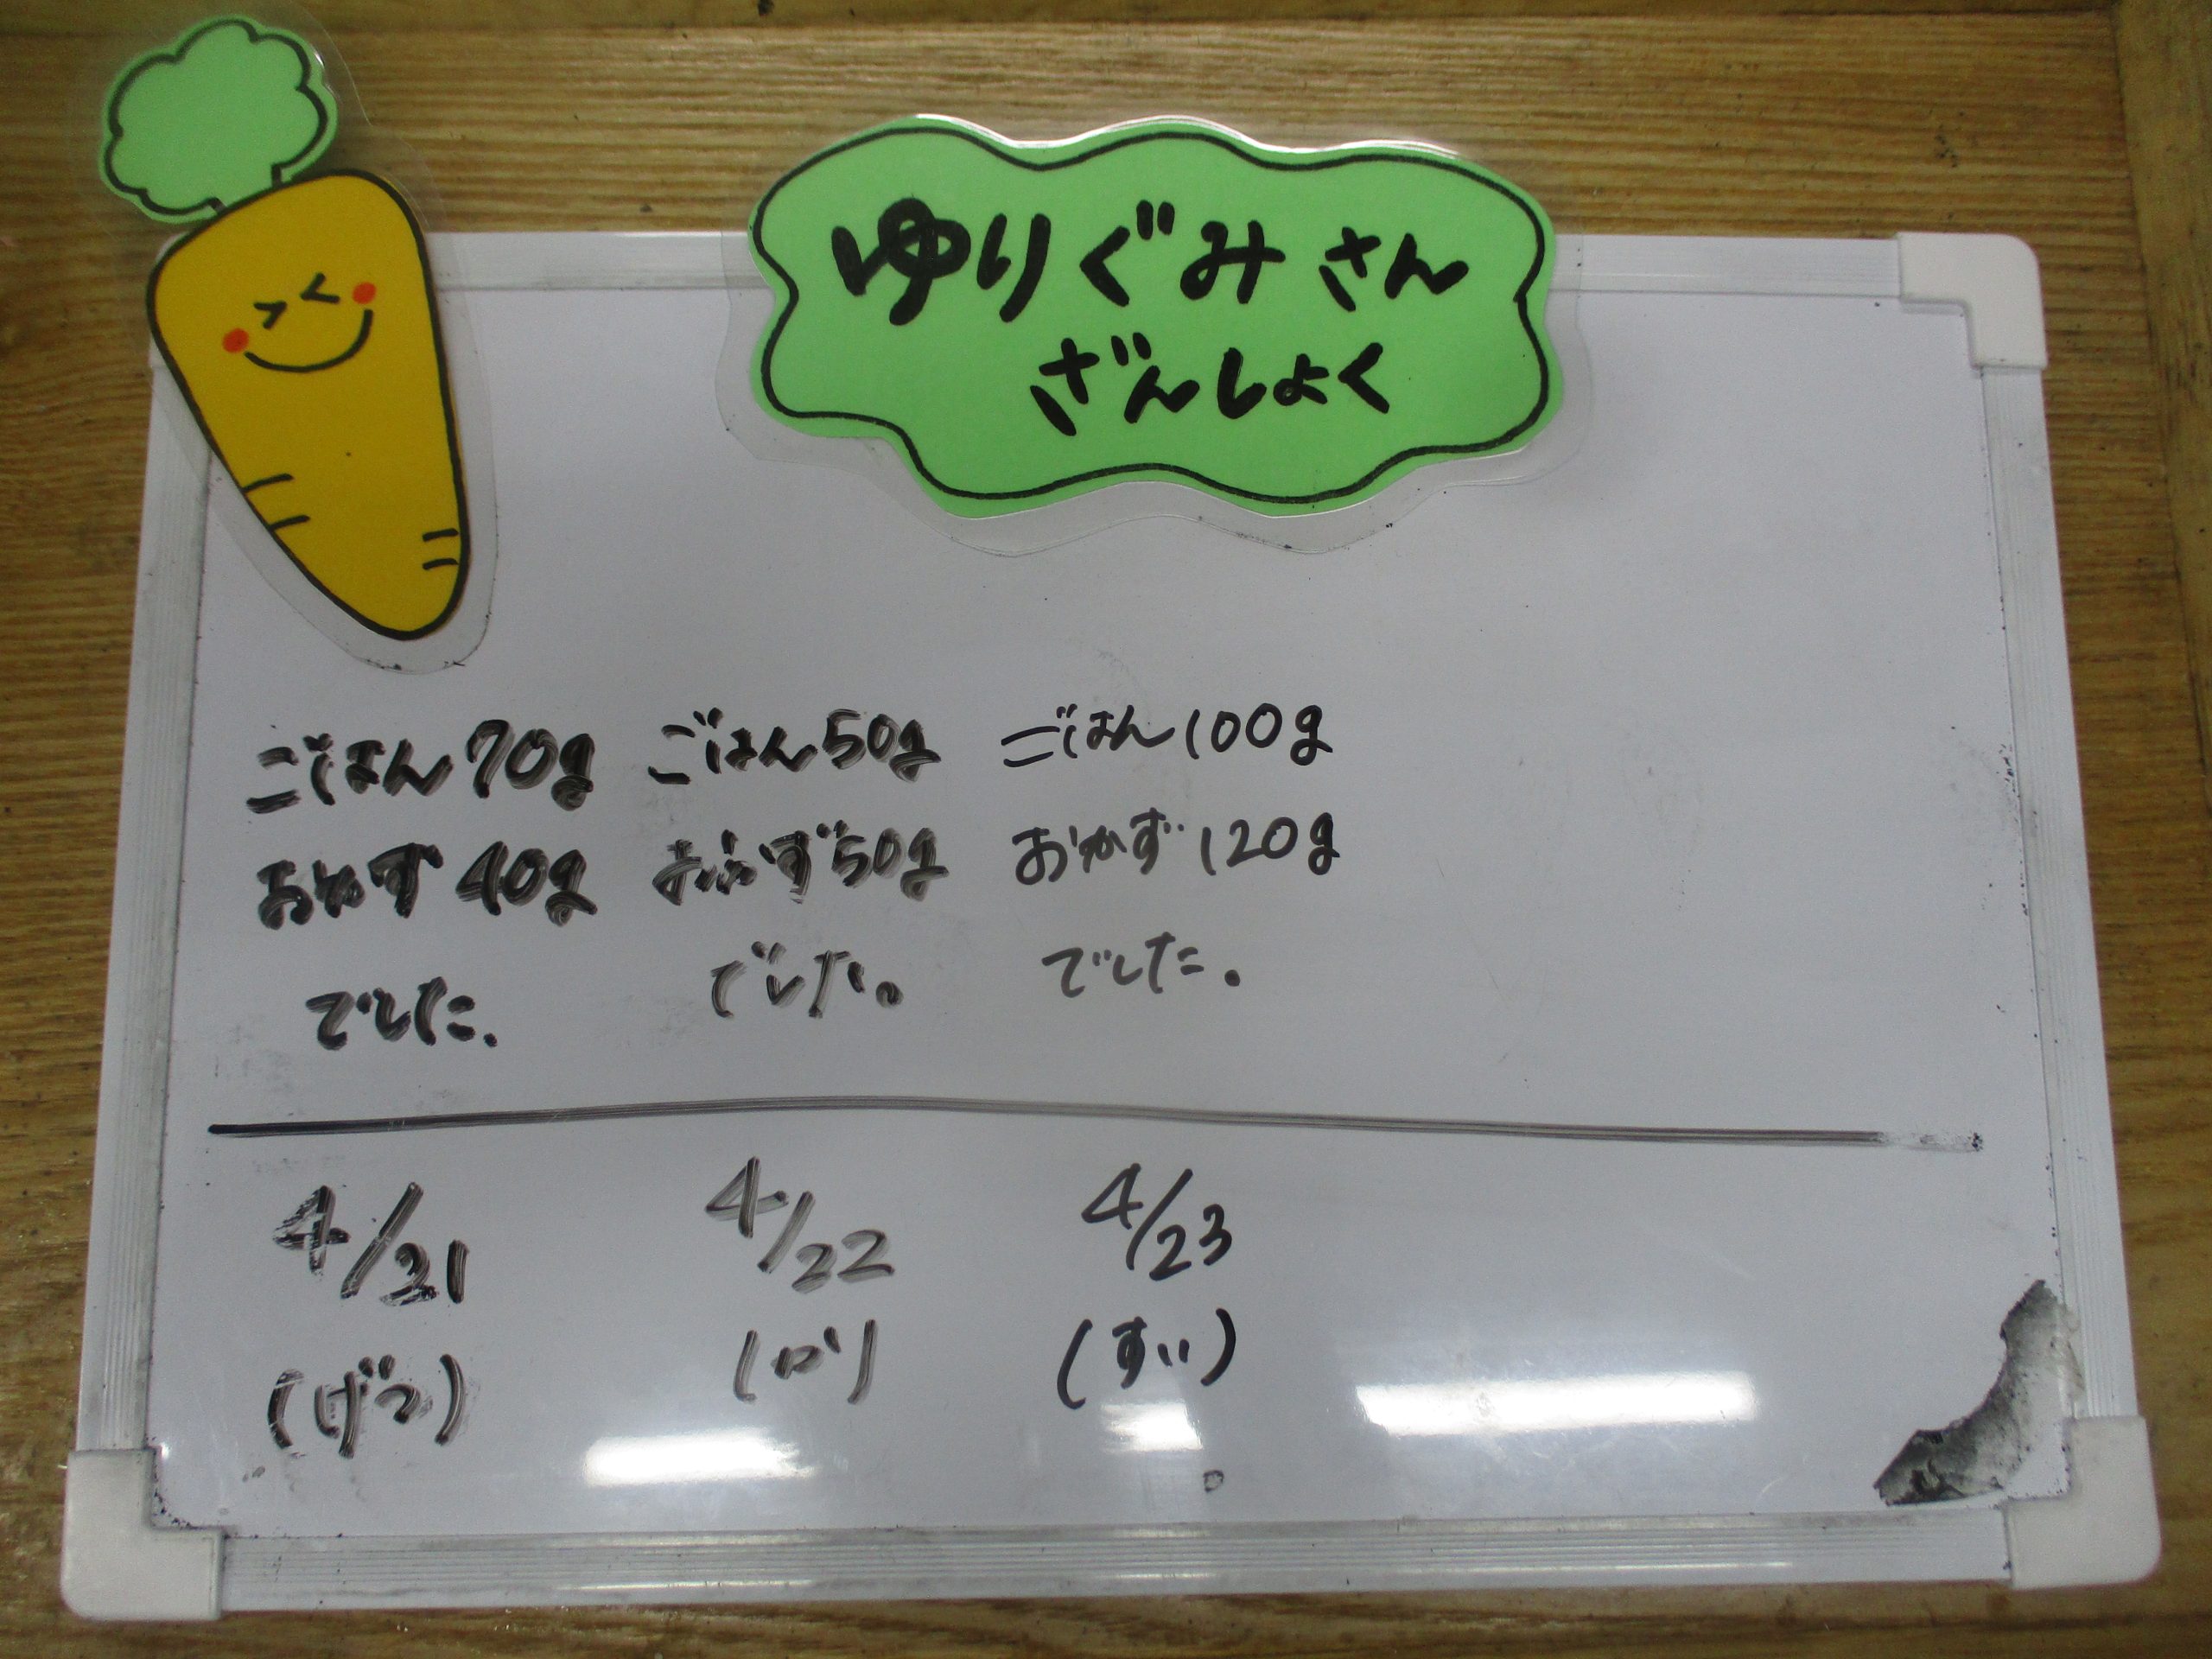 ゆりぐみさん
ざんしょく
ごはん70g
おかず40g
でした.
ごはん50g
おかず50g
でした。
ごはん100g
おかず120g
でした.
4/21
(げつ)
4/22
(か)
4/23
(すい)